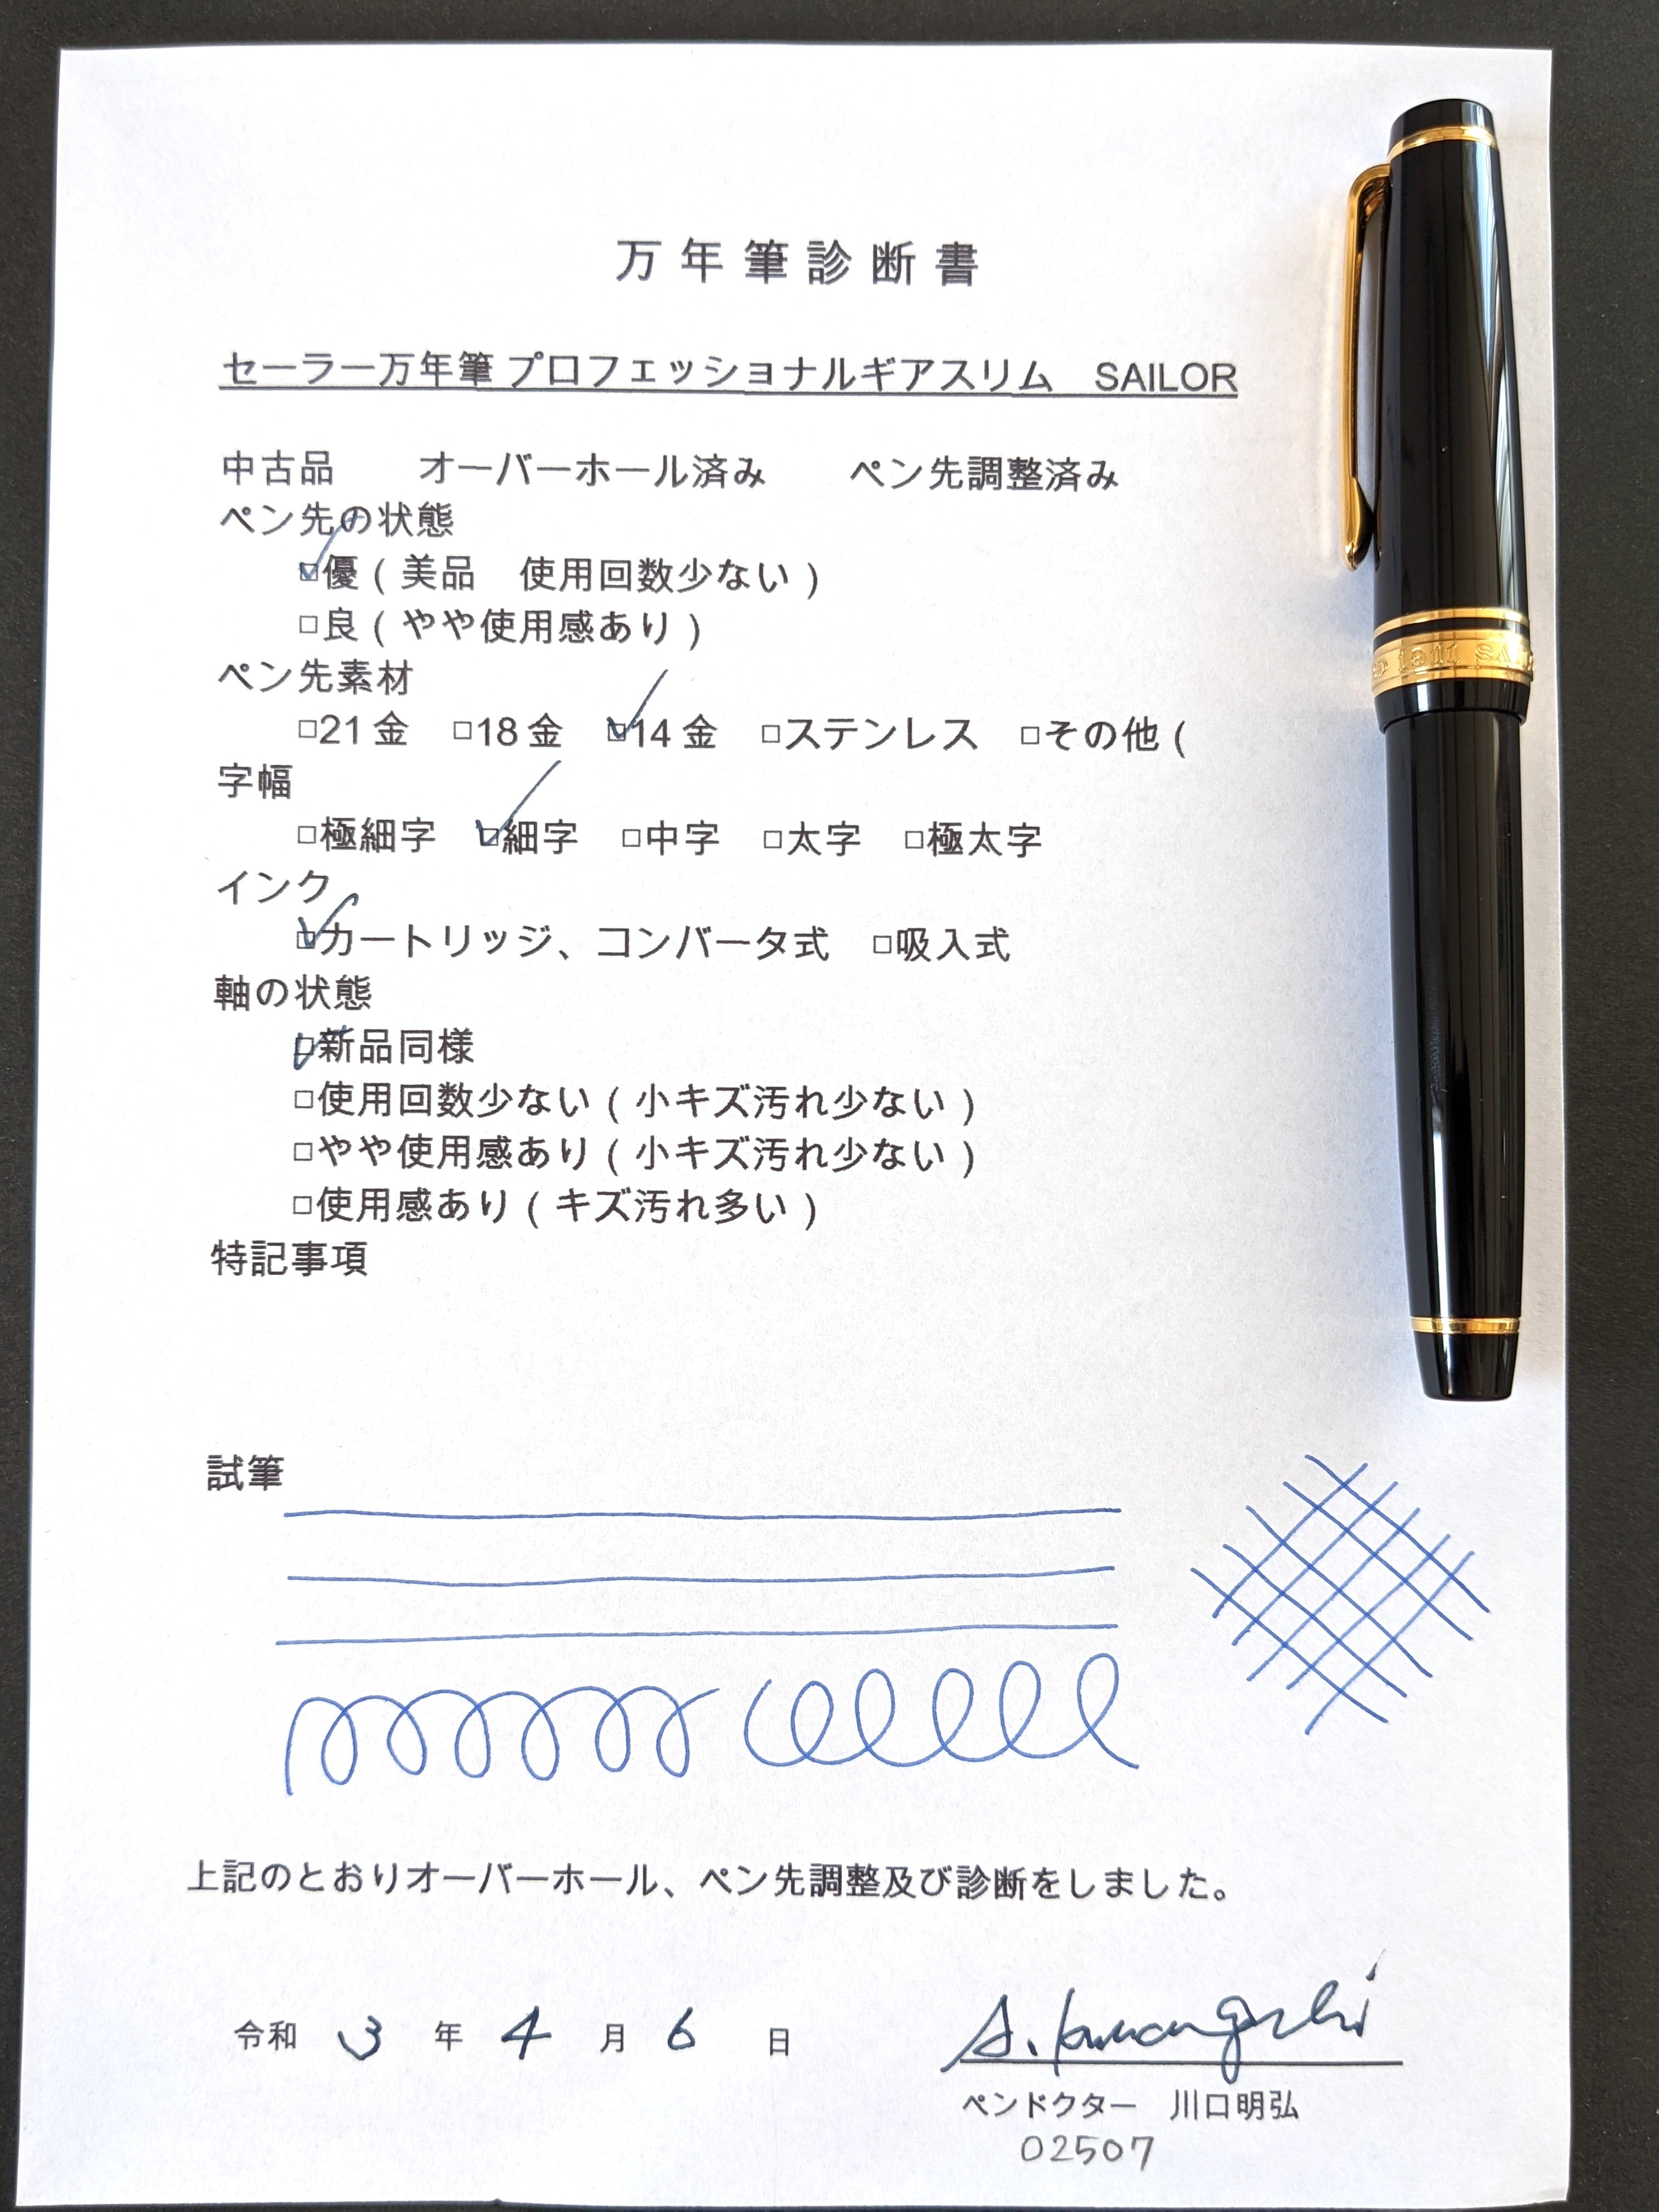 万年筆診断書
セーラー万年筆 プロフェッショナルギアスリム　SAILOR
中古品　　オーバーホール済み　　ペン先調整済み
ペン先の状態
☑優（美品　使用回数少ない）
□良（やや使用感あり）
ペン先素材
□21金　□18金　☑14金　□ステンレス　□その他（
字幅
□極細字　☑細字　□中字　□太字　□極太字
インク
☑カートリッジ、コンバータ式　□吸入式
軸の状態
☑新品同様
□使用回数少ない（小キズ汚れ少ない）
□やや使用感あり（小キズ汚れ少ない）
□使用感あり（キズ汚れ多い）
特記事項
試筆
上記のとおりオーバーホール、ペン先調整及び診断をしました。
令和 3 年 4 月 6 日
A. Kawaguchi
ペンドクター　川口明弘
02507
1911 SA